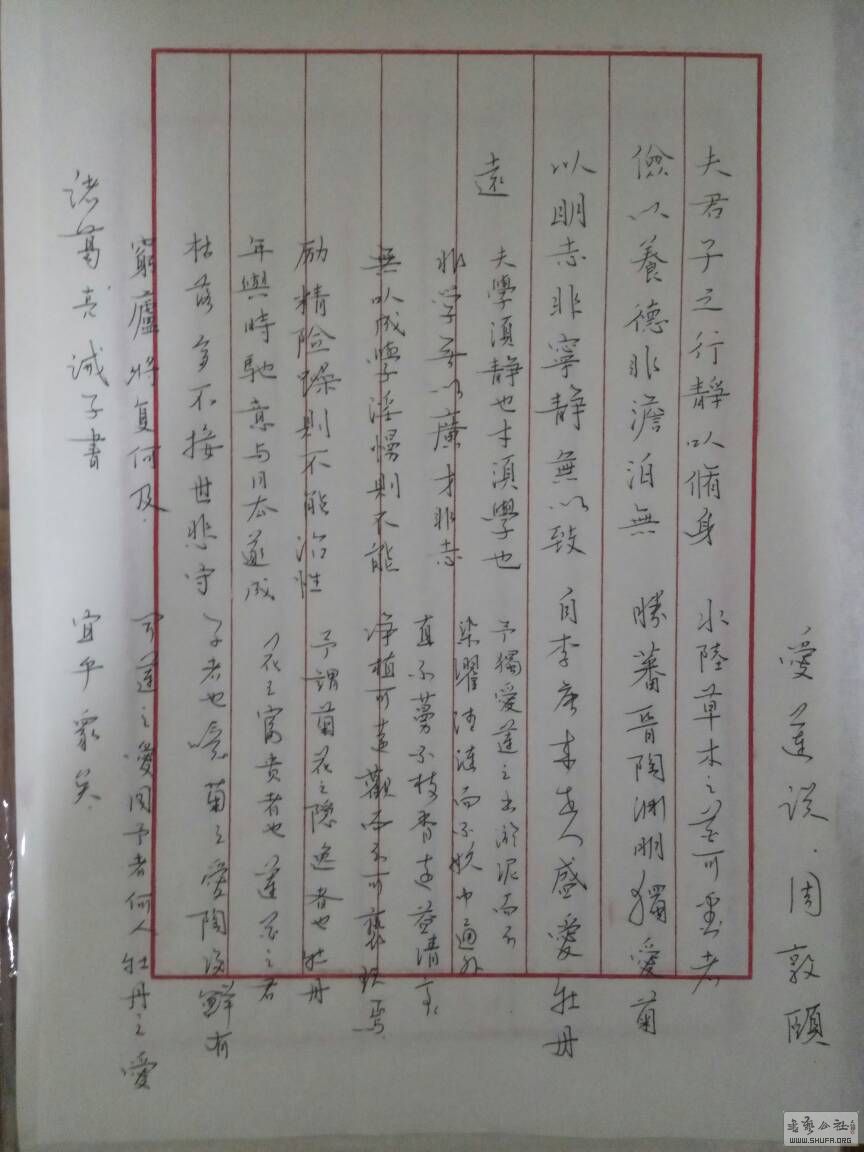 夫君子之行靜以脩身
儉以養德非澹泊無
以明志非寧靜無以致
遠
夫學須靜也才須學也
非学無以廣才非志
無以成學淫慢則不能
励精险躁則不能治性
年與時馳意与日去遂成
枯落多不接世悲守
窮廬將复何及.
诸葛亮诫子書
愛蓮说.周敦頤
水陸草木之花可愛者
勝蕃晉陶渊明獨愛菊
自李唐来世人盛愛牡丹
予獨愛蓮之出淤泥而不
染濯清漣而不妖中通外
直不蔓不枝香远益清亭
净植可遠觀而不可褻玩焉
予謂菊花之隐逸者也牡丹
花之富贵者也蓮花之君
子者也噫菊之愛陶後鮮有
聞蓮之愛同予者何人牡丹之愛
宜乎眾矣.
書藝公社
WWW.SHUFA.ORG